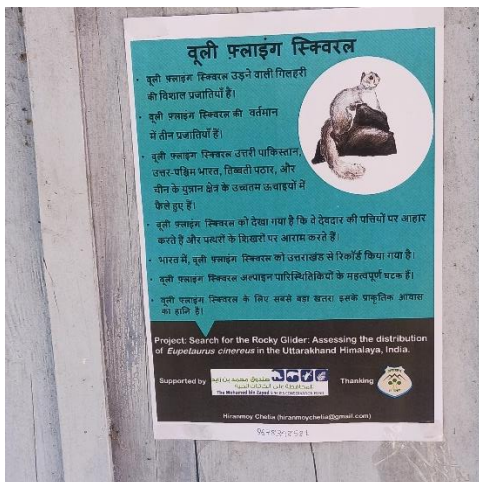 वूली फ़्लाइंग स्क्विरल
• वूली फ़्लाइंग स्क्विरल उड़ने वाली गिलहरी
की विशाल प्रजातियाँ हैं।
• वूली फ़्लाइंग स्क्विरल की वर्तमान
में तीन प्रजातियाँ हैं।
• वूली फ़्लाइंग स्क्विरल उत्तरी पाकिस्तान,
उत्तर-पश्चिम भारत, तिब्बती पठार, और
चीन के युन्नान क्षेत्र के उच्चतम ऊचाइयों में
फैले हुए हैं।
• वूली फ़्लाइंग स्क्विरल को देखा गया है कि वे देवदार की पत्तियों पर आहार
करते हैं और पत्थरों के शिखरों पर आराम करते हैं।
• भारत में, वूली फ़्लाइंग स्क्विरल को उत्तराखंड से रिकॉर्ड किया गया है।
• वूली फ़्लाइंग स्क्विरल अल्पाइन पारिस्थितिकियों के महत्वपूर्ण घटक हैं।
• वूली फ़्लाइंग स्क्विरल के लिए सबसे बड़ा खतरा इसके प्राकृतिक आवास
का हानि है।
Project: Search for the Rocky Glider: Assessing the distribution
of Eupetaurus cinereus in the Uttarakhand Himalaya, India.
Supported by
صندوق محمد بن زايد
للمحافظة على الكائنات الحية
The Mohamed bin Zayed SPECIES CONSERVATION FUND
Thanking
Hiranmoy Chetia (hiranmoychetia@gmail.com)